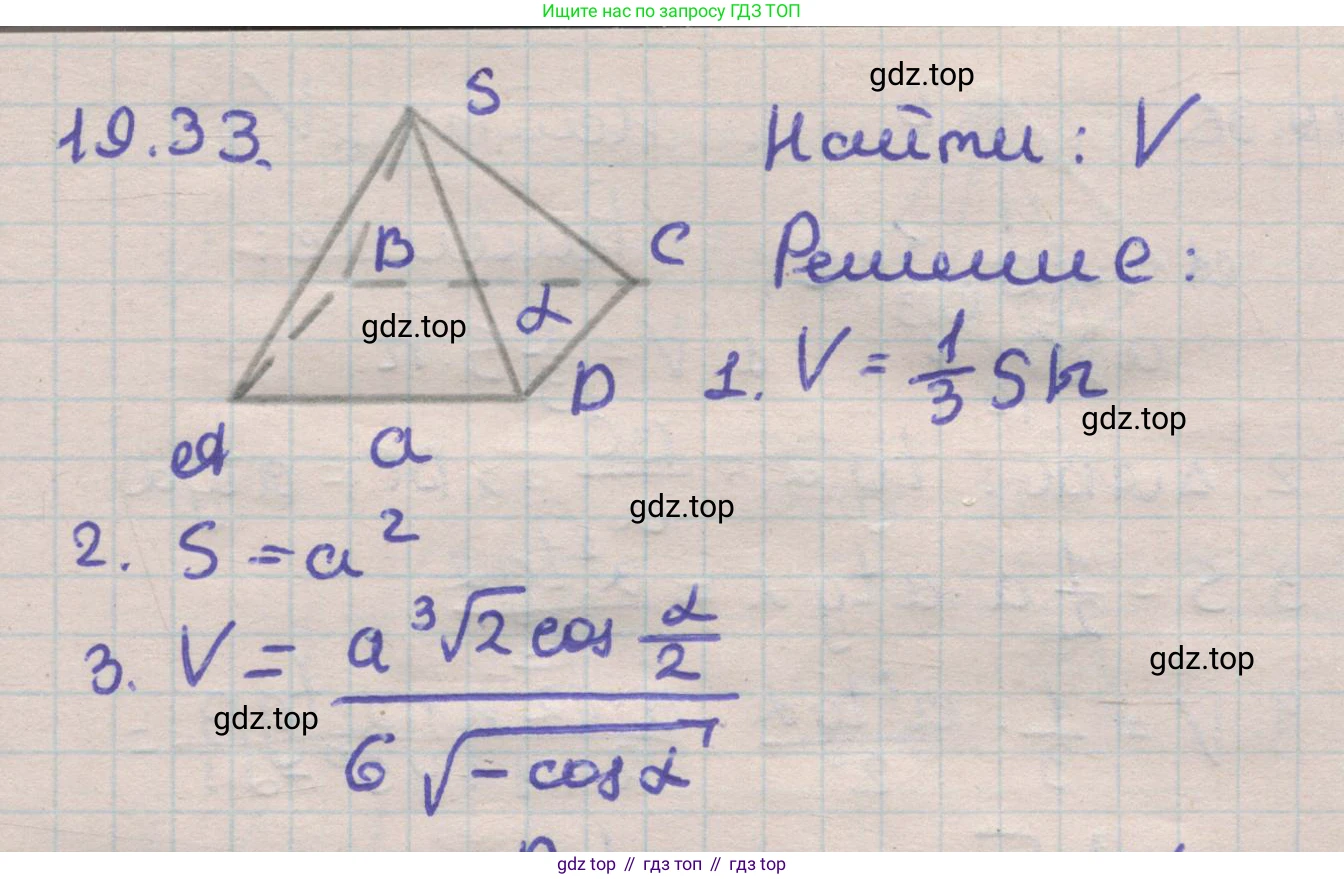 Ищите нас по запросу ГДЗ ТОП
gdz.top
19.33.
S
Найти: V
B
C
Решение:
gdz.top
α
1. V = 1/3 Sh
D
gdz.top
A
a
gdz.top
2. S = a²
3. V = a³√2 cos α/2 / 6√-cos α
gdz.top
gdz.top
gdz top // гдз топ // гдз top